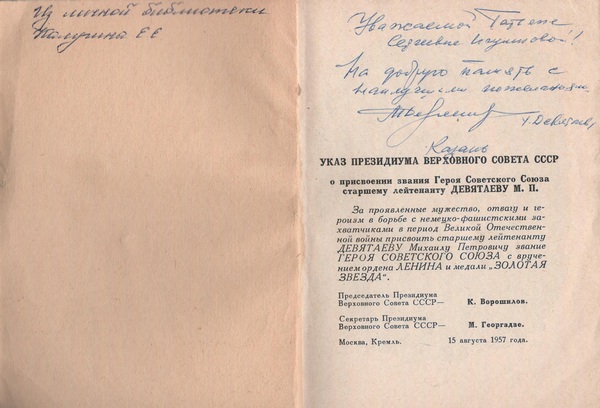 Из личной библиотеки
Калугина Е Е
Уважаемой Татьяне
Сергеевне
На добрую память с
наилучшими пожеланиями
Казань
УКАЗ ПРЕЗИДИУМА ВЕРХОВНОГО СОВЕТА СССР
о присвоении звания Героя Советского Союза
старшему лейтенанту ДЕВЯТАЕВУ М. П.
За проявленные мужество, отвагу и ге-
роизм в борьбе с немецко-фашистскими за-
хватчиками в период Великой Отечествен-
ной войны присвоить старшему лейтенанту
ДЕВЯТАЕВУ Михаилу Петровичу звание
ГЕРОЯ СОВЕТСКОГО СОЮЗА с вруче-
нием ордена ЛЕНИНА и медали „ЗОЛОТАЯ
ЗВЕЗДА".
Председатель Президиума
Верховного Совета СССР— К. Ворошилов.
Секретарь Президиума
Верховного Совета СССР— М. Георгадзе.
Москва, Кремль. 15 августа 1957 года.